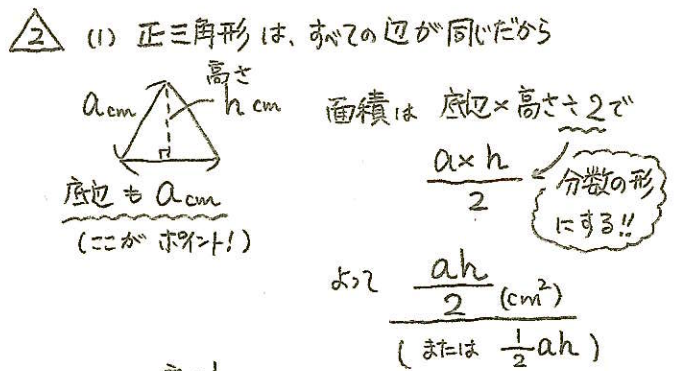 2 (1) 正三角形は、すべての辺が同じだから
高さ
acm
h cm
底辺も acm
(ここがポイント!)
面積は 底辺×高さ÷2で
a×h
2
分数の形
にする!!
よって ah/2 (cm²)
(または 1/2 ah)